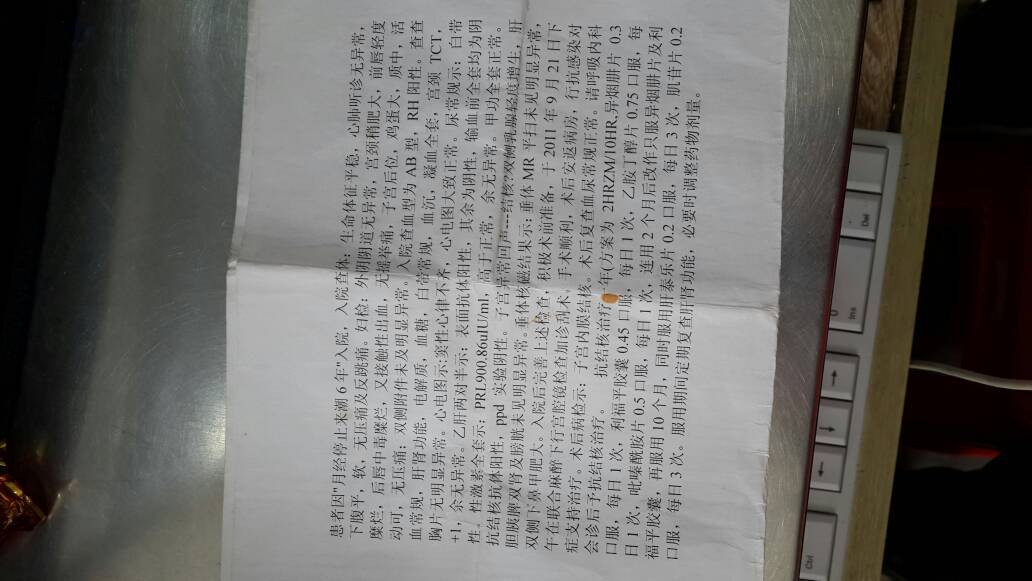 患者因"月经停止来潮 6 年"入院，入院查体：生命体征平稳，心肺听诊无异常，
下腹平，软，无压痛及反跳痛。妇检：外阴阴道无异常，宫颈稍肥大，前唇轻度
糜烂，后唇中毒糜烂，又接触性出血，无摇举痛，子宫后位，鸡蛋大，质中，活
动可，无压痛；双侧附件未及明显异常。入院查血型为 AB 型，RH 阳性。查查
血常规，肝肾功能，电解质，血糖，白带常规，血沉，凝血全套，宫颈 TCT，
胸片无明显异常。心电图示:窦性心律不齐，心电图大致正常，尿常规示：白带
+1，余无异常。乙肝两对半示：表面抗体阳性，其余为阴性，输血前全套均为阴
性。性激素全套示；PRL900.86uIU/ml，高于正常，余无异常。甲功全套正常。
抗结核抗体阳性，ppd 实验阴性。子宫异常回声---结核?双侧乳腺轻度增生，肝
胆胰脾双肾及膀胱未见明显异常。垂体核磁结果示:垂体 MR 平扫未见明显异常，
双侧下鼻甲肥大。入院后完善上述检查，积极术前准备，于 2011 年 9 月 21 日下
午在联合麻醉下行宫腔镜检查加诊刮术，手术顺利，术后安返病房，行抗感染对
症支持治疗。术后病检示：子宫内膜结核。术后复查血尿常规正常。请呼吸内科
会诊后予抗结核治疗。 抗结核治疗 年(方案为 2HRZM/10HR.异烟肼片 0.3
口服，每日 1 次，利福平胶囊 0.45 口服，每日 1 次，乙胺丁醇片 0.75 口服，每
日 1 次，吡嗪酰胺片 0.5 口服，每日 1 次，连用 2 个月后改作只服异烟肼片及利
福平胶囊，再服用 10 个月，同时服用肝泰乐片 0.2 口服，每日 3 次，肌苷片 0.2
口服，每日 3 次。服用期间定期复查肝肾功能，必要时调整药物剂量。
Ctrl
Ins
Del
0
.
←
↓
→